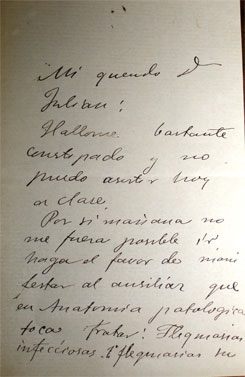 Mi querido D
Julian:
Hallome bastante
constipado y no
puedo asistir hoy
a clase.
Por si mañana no
me fuera posible ir
haga el favor de mani
festar al auxiliar que
en Anatomia patologica
toca tratar: Flegmasias
infecciosas. Flegmasias